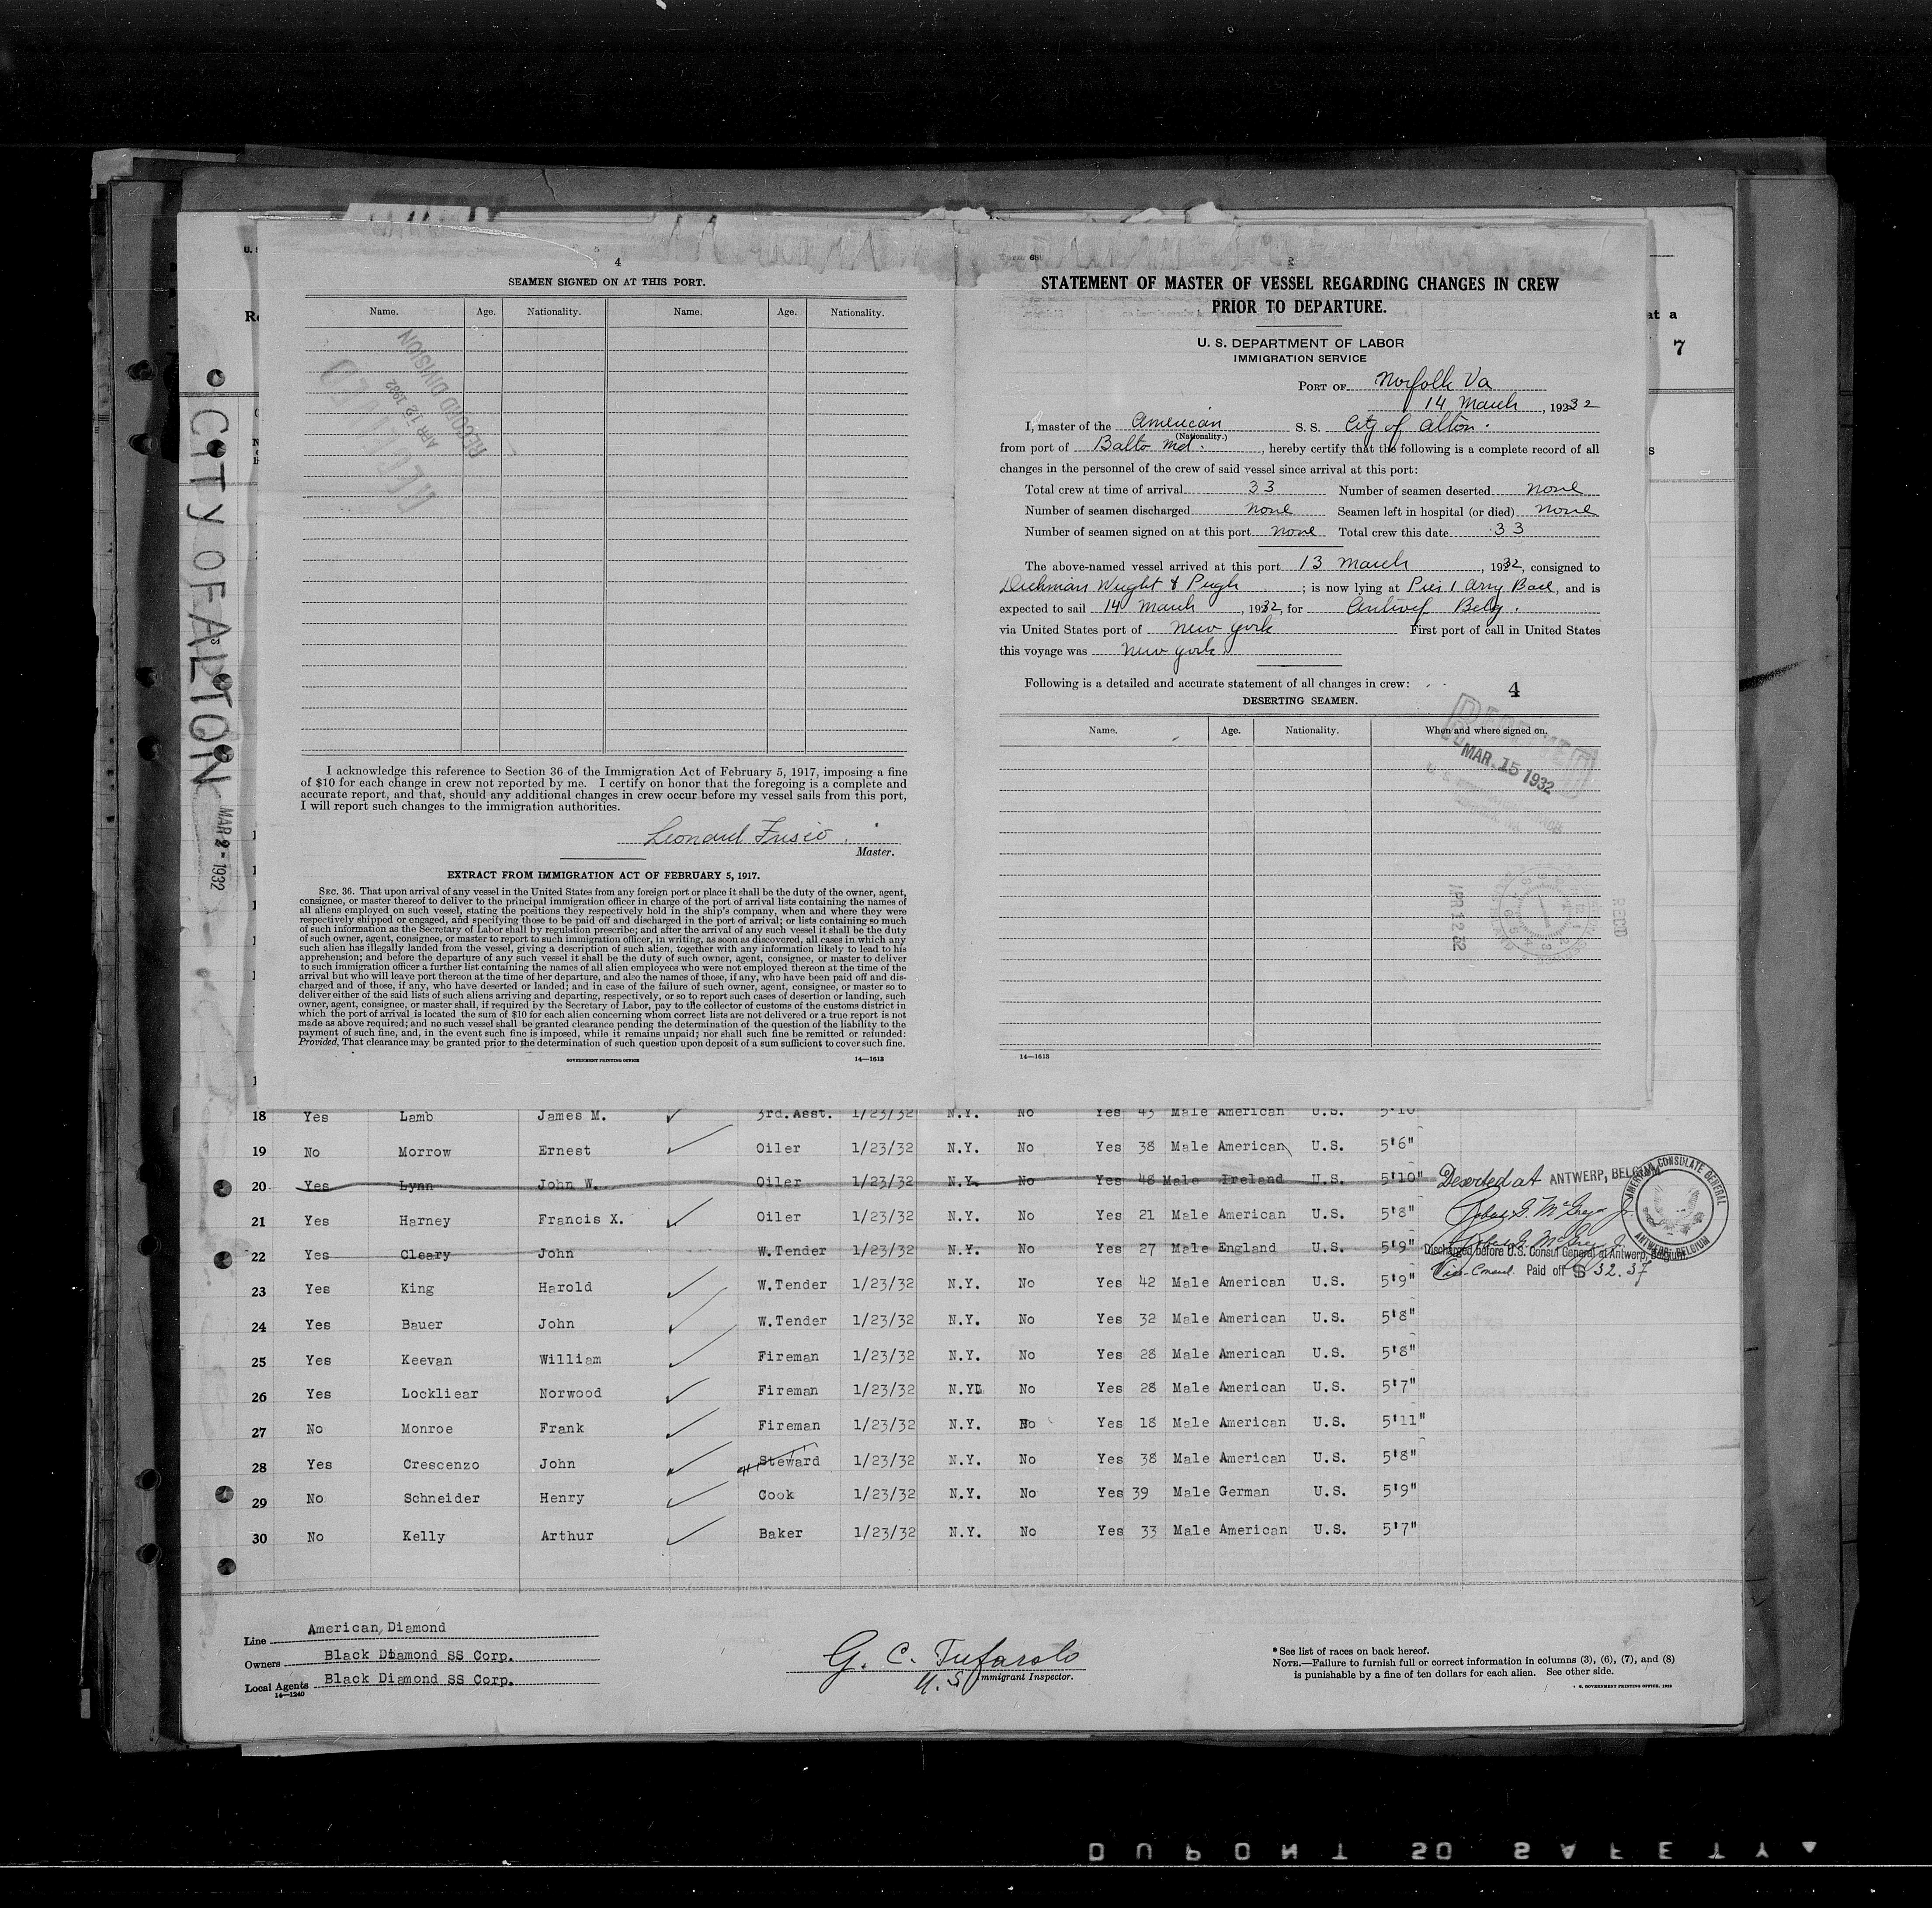 4
SEAMEN SIGNED ON AT THIS PORT.
Name. Age. Nationality. Name. Age. Nationality.
RECEIVED
APR 12 1932
RECORD DIVISION
I acknowledge this reference to Section 36 of the Immigration Act of February 5, 1917, imposing a fine
of $10 for each change in crew not reported by me. I certify on honor that the foregoing is a complete and
accurate report, and that, should any additional changes in crew occur before my vessel sails from this port,
I will report such changes to the immigration authorities.
Leonard
Master.
EXTRACT FROM IMMIGRATION ACT OF FEBRUARY 5, 1917.
SEC. 36. That upon arrival of any vessel in the United States from any foreign port or place it shall be the duty of the owner, agent,
consignee, or master thereof to deliver to the principal immigration officer in charge of the port of arrival lists containing the names of
all aliens employed on such vessel, stating the positions they respectively hold in the ship's company, when and where they were
respectively shipped or engaged, and specifying those to be paid off and discharged in the port of arrival; or lists containing so much
of such information as the Secretary of Labor shall by regulation prescribe; and after the arrival of any such vessel it shall be the duty
of such owner, agent, consignee, or master to report to such immigration officer, in writing, as soon as discovered, all cases in which any
such alien has illegally landed from the vessel, giving a description of such alien, together with any information likely to lead to his
apprehension; and before the departure of any such vessel it shall be the duty of such owner, agent, consignee, or master to deliver
to such immigration officer a further list containing the names of all alien employees who were not employed thereon at the time of the
arrival but who will leave port thereon at the time of her departure, and also the names of those, if any, who have been paid off and dis-
charged and of those, if any, who have deserted or landed; and in case of the failure of such owner, agent, consignee, or master so to
deliver either of the said lists of such aliens arriving and departing, respectively, or so to report such cases of desertion or landing, such
owner, agent, consignee, or master shall, if required by the Secretary of Labor, pay to the collector of customs of the customs district in
which the port of arrival is located the sum of $10 for each alien concerning whom correct lists are not delivered or a true report is not
made as above required; and no such vessel shall be granted clearance pending the determination of the question of the liability to the
payment of such fine, and, in the event such fine is imposed, while it remains unpaid; nor shall such fine be remitted or refunded:
Provided, That clearance may be granted prior to the determination of such question upon deposit of a sum sufficient to cover such fine.
GOVERNMENT PRINTING OFFICE 14—1613
STATEMENT OF MASTER OF VESSEL REGARDING CHANGES IN CREW
PRIOR TO DEPARTURE.
U. S. DEPARTMENT OF LABOR
IMMIGRATION SERVICE
PORT OF Norfolk Va
14 March, 1932
I, master of the American S. S. City of Alton.
(Nationality.)
from port of Balto Md., hereby certify that the following is a complete record of all
changes in the personnel of the crew of said vessel since arrival at this port:
Total crew at time of arrival 33 Number of seamen deserted none
Number of seamen discharged none Seamen left in hospital (or died) none
Number of seamen signed on at this port none Total crew this date 33
The above-named vessel arrived at this port 13 March, 1932, consigned to
Dichman Wright & Pugh; is now lying at Pier 1 Army Base, and is
expected to sail 14 March, 1932, for Antwep Belg.
via United States port of New York First port of call in United States
this voyage was New York
Following is a detailed and accurate statement of all changes in crew:
4
DESERTING SEAMEN.
Name. Age. Nationality. When and where signed on.
MAR. 15 1932
REC'D
APR 12 32
14—1613
at a
7
CITY OF ALTON
MAR 2 - 1932
18 Yes Lamb James M. 3rd.Asst. 1/23/32 N.Y. No Yes 43 Male American U.S. 5'10
19 No Morrow Ernest Oiler 1/23/32 N.Y. No Yes 38 Male American U.S. 5'6"
20 Yes Lynn John W. Oiler 1/23/32 N.Y. No Yes 48 Male Ireland U.S. 5'10" Deserted at ANTWERP, BELGIUM
21 Yes Harney Francis X. Oiler 1/23/32 N.Y. No Yes 21 Male American U.S. 5'8"
22 Yes Cleary John W.Tender 1/23/32 N.Y. No Yes 27 Male England U.S. 5'9" Discharged before U.S. Consul General at Antwerp, Belgium
Vice-Consul. Paid off $ 32.37
AMERICAN CONSULATE GENERAL
ANTWERP, BELGIUM
23 Yes King Harold W.Tender 1/23/32 N.Y. No Yes 42 Male American U.S. 5'9"
24 Yes Bauer John W.Tender 1/23/32 N.Y. No Yes 32 Male American U.S. 5'8"
25 Yes Keevan William Fireman 1/23/32 N.Y. No Yes 28 Male American U.S. 5'8"
26 Yes Lockliear Norwood Fireman 1/23/32 N.Y. No Yes 28 Male American U.S. 5'7"
27 No Monroe Frank Fireman 1/23/32 N.Y. No Yes 18 Male American U.S. 5'11"
28 Yes Crescenzo John Steward 1/23/32 N.Y. No Yes 38 Male American U.S. 5'8"
29 No Schneider Henry Cook 1/23/32 N.Y. No Yes 39 Male German U.S. 5'9"
30 No Kelly Arthur Baker 1/23/32 N.Y. No Yes 33 Male American U.S. 5'7"
Line American Diamond
Owners Black Diamond SS Corp.
Local Agents Black Diamond SS Corp.
14—1240
G. C. Tufarolo
U. S. Immigrant Inspector.
* See list of races on back hereof.
NOTE.—Failure to furnish full or correct information in columns (3), (6), (7), and (8)
is punishable by a fine of ten dollars for each alien. See other side.
DUPONT SO SAFETY